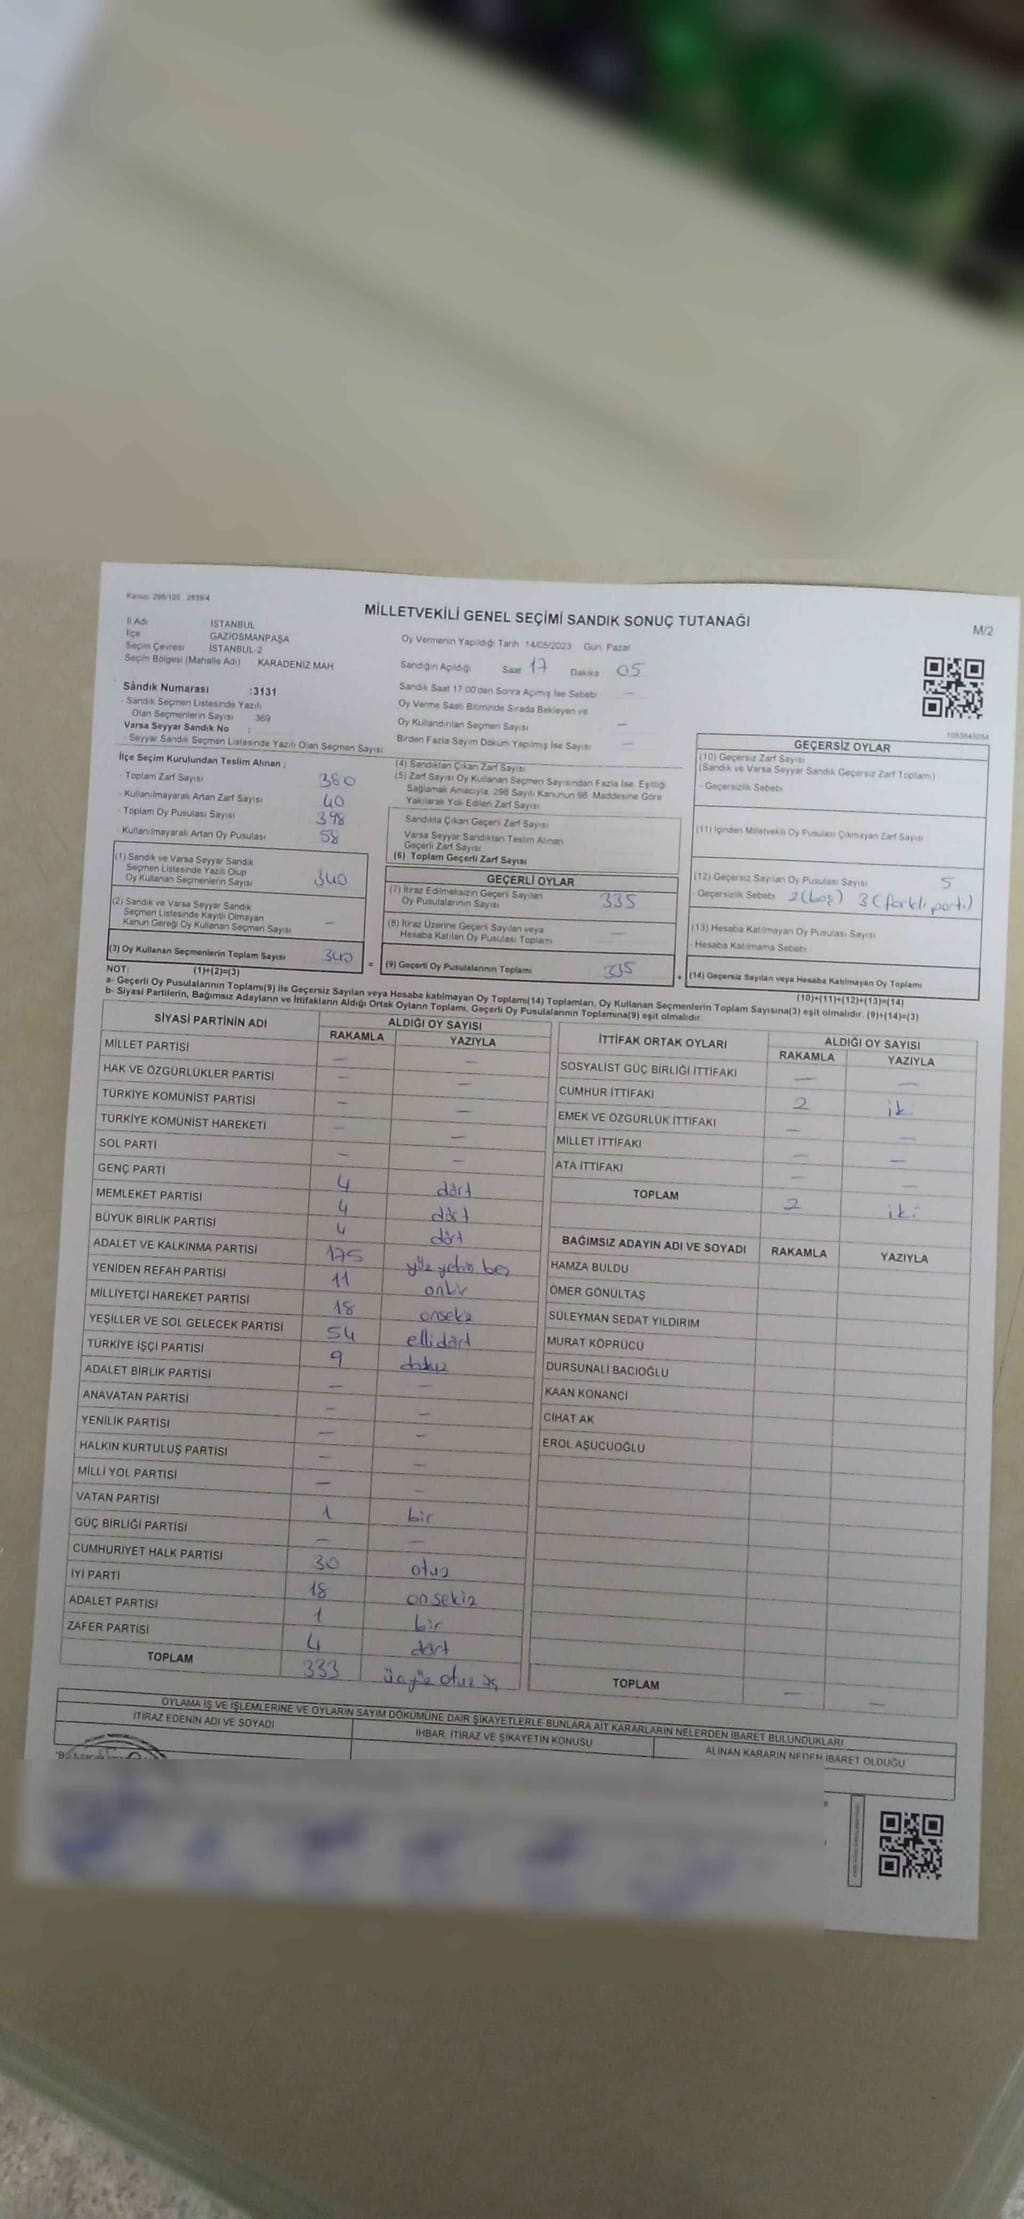 Kanun: 298/105 , 2839/4
MİLLETVEKİLİ GENEL SEÇİMİ SANDIK SONUÇ TUTANAĞI
M/2
İl Adı İSTANBUL
İlçe GAZİOSMANPAŞA
Seçim Çevresi İSTANBUL-2
Seçim Bölgesi (Mahalle Adı) KARADENİZ MAH
Sandık Numarası :3131
Sandık Seçmen Listesinde Yazılı
Olan Seçmenlerin Sayısı 369
Varsa Seyyar Sandık No :
Seyyar Sandık Seçmen Listesinde Yazılı Olan Seçmen Sayısı
Oy Vermenin Yapıldığı Tarih 14/05/2023 Gün: Pazar
Sandığın Açıldığı Saat 17 Dakika 05
Sandık Saat 17.00'den Sonra Açılmış İse Sebebi —
Oy Verme Saati Bitiminde Sırada Bekleyen ve
Oy Kullandırılan Seçmen Sayısı —
Birden Fazla Sayım Döküm Yapılmış İse Sayısı —
1083643054
İlçe Seçim Kurulundan Teslim Alınan :
- Toplam Zarf Sayısı 380
- Kullanılmayarak Artan Zarf Sayısı 40
- Toplam Oy Pusulası Sayısı 398
- Kullanılmayarak Artan Oy Pusulası 58
(1) Sandık ve Varsa Seyyar Sandık
Seçmen Listesinde Yazılı Olup
Oy Kullanan Seçmenlerin Sayısı 340
(2) Sandık ve Varsa Seyyar Sandık
Seçmen Listesinde Kayıtlı Olmayan
Kanun Gereği Oy Kullanan Seçmen Sayısı —
(3) Oy Kullanan Seçmenlerin Toplam Sayısı 340
(1)+(2)=(3)
(4) Sandıktan Çıkan Zarf Sayısı
(5) Zarf Sayısı Oy Kullanan Seçmen Sayısından Fazla İse, Eşitliği
Sağlamak Amacıyla, 298 Sayılı Kanunun 98. Maddesine Göre
Yakılarak Yok Edilen Zarf Sayısı
Sandıkta Çıkan Geçerli Zarf Sayısı
Varsa Seyyar Sandıktan Teslim Alınan
Geçerli Zarf Sayısı
(6) Toplam Geçerli Zarf Sayısı
GEÇERLİ OYLAR
(7) İtiraz Edilmeksizin Geçerli Sayılan
Oy Pusulalarının Sayısı 335
(8) İtiraz Üzerine Geçerli Sayılan veya
Hesaba Katılan Oy Pusulası Toplamı —
= (9) Geçerli Oy Pusulalarının Toplamı 335
GEÇERSİZ OYLAR
(10) Geçersiz Zarf Sayısı
(Sandık ve Varsa Seyyar Sandık Geçersiz Zarf Toplamı)
- Geçersizlik Sebebi
(11) İçinden Milletvekili Oy Pusulası Çıkmayan Zarf Sayısı
(12) Geçersiz Sayılan Oy Pusulası Sayısı 5
- Geçersizlik Sebebi 2(boş) 3(farklı parti)
(13) Hesaba Katılmayan Oy Pusulası Sayısı
- Hesaba Katılmama Sebebi
+ (14) Geçersiz Sayılan veya Hesaba Katılmayan Oy Toplamı
(10)+(11)+(12)+(13)=(14)
NOT:
a- Geçerli Oy Pusulalarının Toplamı(9) ile Geçersiz Sayılan veya Hesaba katılmayan Oy Toplamı(14) Toplamları, Oy Kullanan Seçmenlerin Toplam Sayısına(3) eşit olmalıdır. (9)+(14)=(3)
b- Siyasi Partilerin, Bağımsız Adayların ve İttifakların Aldığı Ortak Oyların Toplamı, Geçerli Oy Pusulalarının Toplamına(9) eşit olmalıdır.
SİYASİ PARTİNİN ADI ALDIĞI OY SAYISI
RAKAMLA YAZIYLA
MİLLET PARTİSİ — —
HAK VE ÖZGÜRLÜKLER PARTİSİ — —
TÜRKİYE KOMÜNİST PARTİSİ — —
TÜRKİYE KOMÜNİST HAREKETİ — —
SOL PARTİ — —
GENÇ PARTİ 4 dört
MEMLEKET PARTİSİ 4 dört
BÜYÜK BİRLİK PARTİSİ 4 dört
ADALET VE KALKINMA PARTİSİ 175 yüz yetmiş beş
YENİDEN REFAH PARTİSİ 11 onbir
MİLLİYETÇİ HAREKET PARTİSİ 18 onsekiz
YEŞİLLER VE SOL GELECEK PARTİSİ 54 ellidört
TÜRKİYE İŞÇİ PARTİSİ 9 dokuz
ADALET BİRLİK PARTİSİ — —
ANAVATAN PARTİSİ — —
YENİLİK PARTİSİ — —
HALKIN KURTULUŞ PARTİSİ — —
MİLLİ YOL PARTİSİ — —
VATAN PARTİSİ 1 bir
GÜÇ BİRLİĞİ PARTİSİ — —
CUMHURİYET HALK PARTİSİ 30 otuz
İYİ PARTİ 18 onsekiz
ADALET PARTİSİ 1 bir
ZAFER PARTİSİ 4 dört
TOPLAM 333 üçyüz otuz üç
İTTİFAK ORTAK OYLARI ALDIĞI OY SAYISI
RAKAMLA YAZIYLA
SOSYALİST GÜÇ BİRLİĞİ İTTİFAKI — —
CUMHUR İTTİFAKI 2 iki
EMEK VE ÖZGÜRLÜK İTTİFAKI — —
MİLLET İTTİFAKI — —
ATA İTTİFAKI — —
TOPLAM 2 iki
BAĞIMSIZ ADAYIN ADI VE SOYADI RAKAMLA YAZIYLA
HAMZA BULDU
ÖMER GÖNÜLTAŞ
SÜLEYMAN SEDAT YILDIRIM
MURAT KÖPRÜCÜ
DURSUNALİ BACIOĞLU
KAAN KONANCİ
CİHAT AK
EROL AŞUCUOĞLU
TOPLAM — —
OYLAMA İŞ VE İŞLEMLERİNE VE OYLARIN SAYIM DÖKÜMÜNE DAİR ŞİKAYETLERLE BUNLARA AİT KARARLARIN NELERDEN İBARET BULUNDUKLARI
İTİRAZ EDENİN ADI VE SOYADI İHBAR, İTİRAZ VE ŞİKAYETİN KONUSU ALINAN KARARIN NEDEN İBARET OLDUĞU